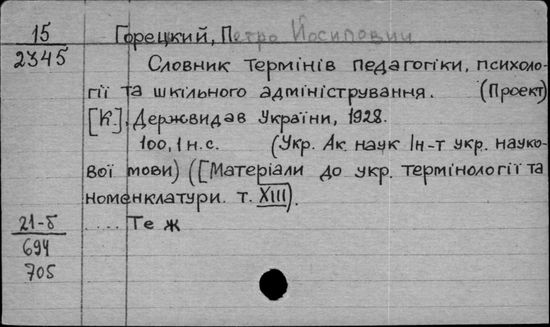 15
2345
Горецкий, Петро Йосипович
Словник термінів педагогіки, психоло-
гії та шкільного адміністрування. (Проект)
[К.], Держвидав України, 1928.
100, 1 н.с. (Укр. Ак. наук Ін-т укр. науко-
вої мови) ([Матеріали до укр. термінології та
номенклатури. т. XIII).
21-б
694
705
.... Те ж